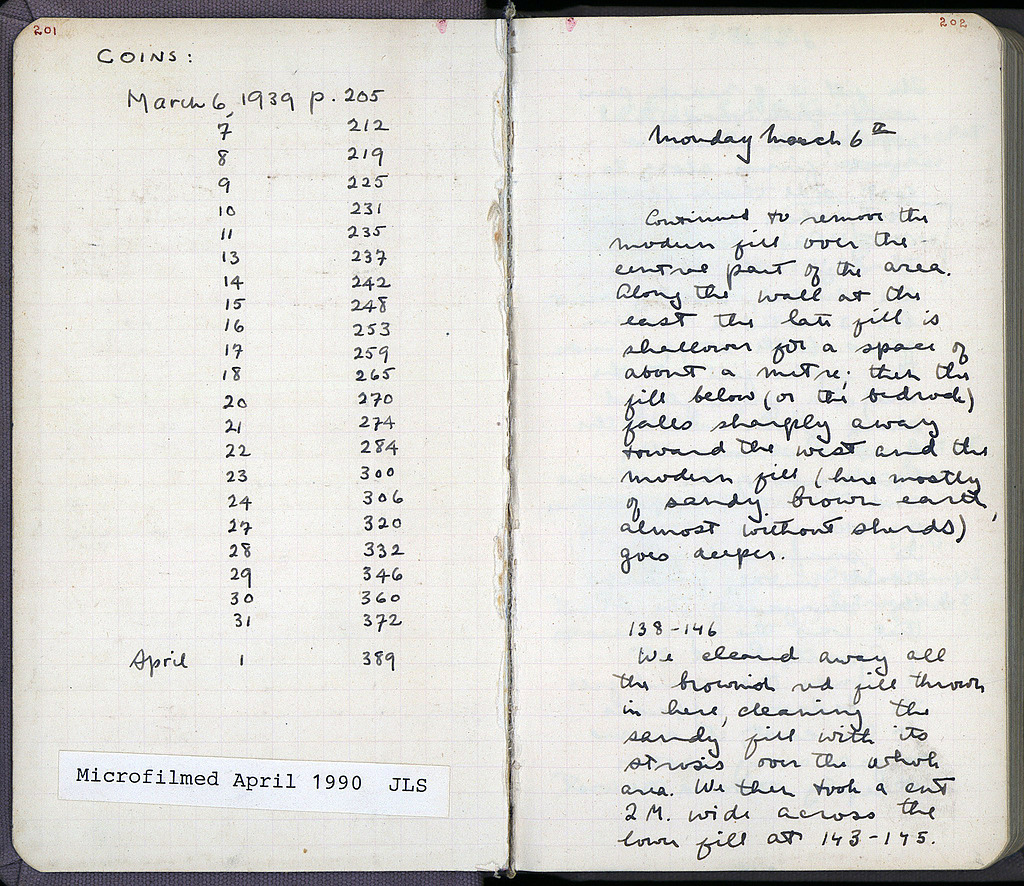 201
COINS:
March 6, 1939 p. 205
7 212
8 219
9 225
10 231
11 235
13 237
14 242
15 248
16 253
17 259
18 265
20 270
21 274
22 284
23 300
24 306
27 320
28 332
29 346
30 360
31 372
April 1 389
Microfilmed April 1990 JLS
202
Monday March 6th
Continued to remove the
modern fill over the
central part of the area.
Along the wall at the
east the late fill is
shallower for a space of
about a metre; then the
fill below (or the bedrock)
falls sharply away
toward the west and the
modern fill (here mostly
of sandy brown earth,
almost without sherds)
goes deeper.
138-146
We cleaned away all
the brownish red fill thrown
in here, cleaning the
sandy fill with its
strosis over the whole
area. We then took a cut
2 M. wide across the
lower fill at 143-145.